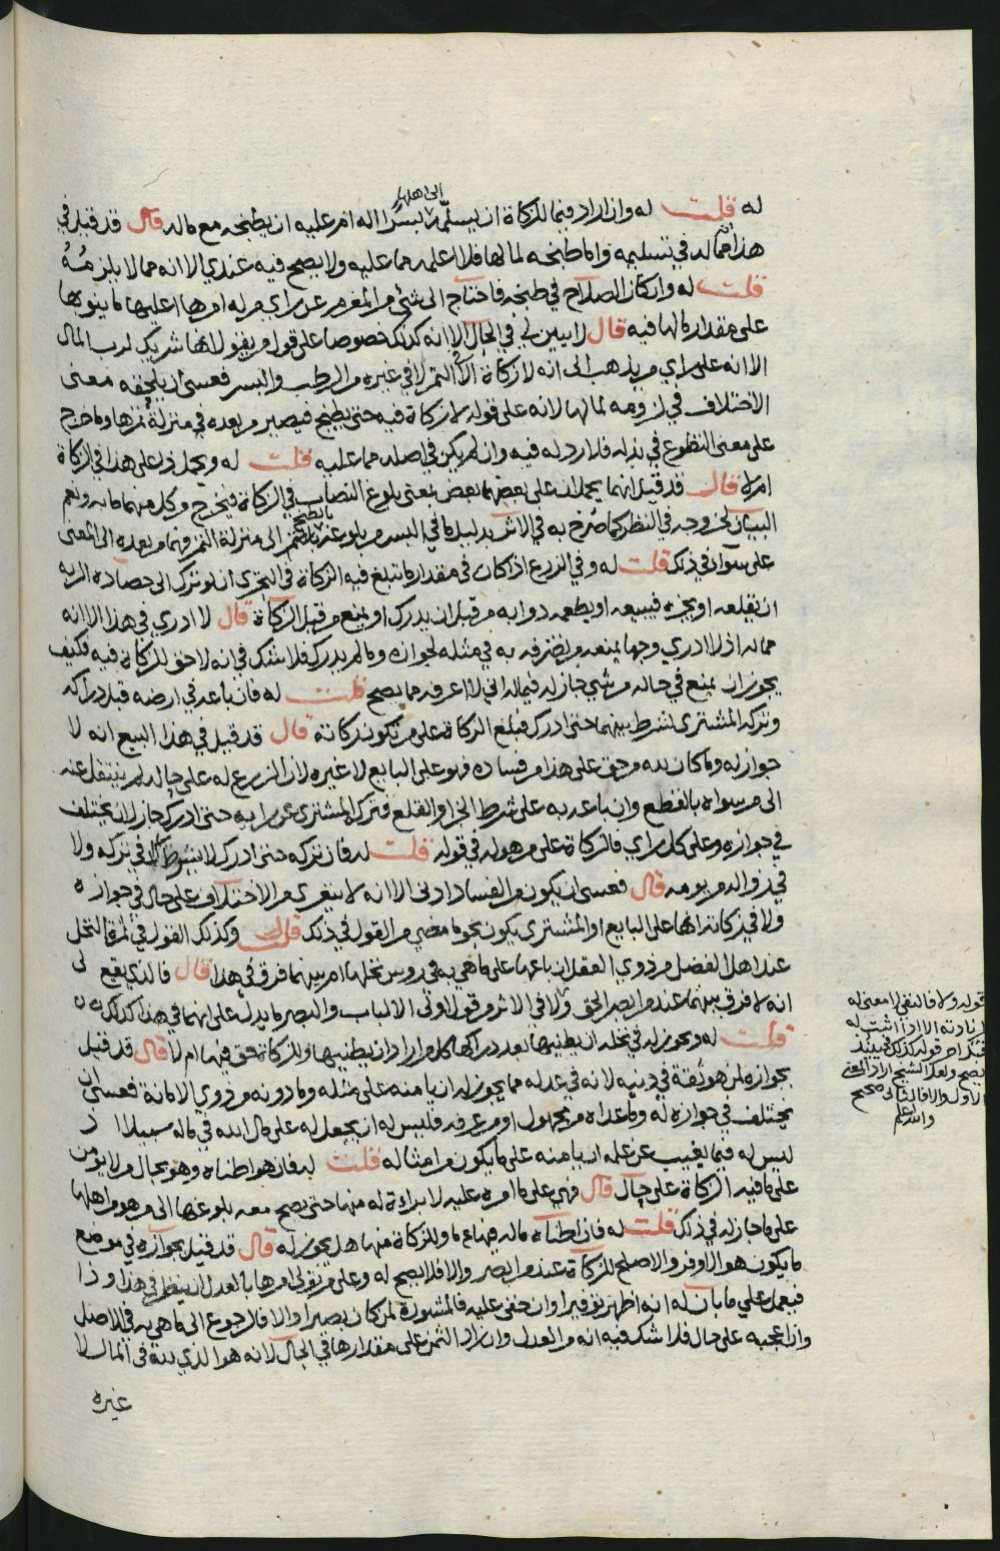 له قلت له وان اراد فيما للزكاة ان يسلمه بسرا اله ام عليه ان يطبخه مع ماله قال قد قيل في
الى اهلها
هذا بما له في تسليمه واما طبخه لما لها فلا اعلمه مما عليه ولا يصح فيه عندي الا انه مما لا يلزمه
قلت له وان كان الصلاح في طبخه فاحتاج الى شيء من المغرم عن راي من له امرها اعليها ما ينوبها
على مقدار ما لها فيه قال لا يبين لي في الحال الا انه كذلك خصوصا على قول من يقول انها شريك لرب المال
الا انه على راي من يذهب الى انه لا زكاة الا في التمر لا في غيره من الرطب والبسر فعسى ان يلحقه معنى
الاختلاف في لزومه لما لها لانه على قوله لا زكاة فيه حتى يطبخ فيصير من بعده في منزلة تمرها وما خرج
على معنى التطوع في بذله فلا رد له فيه وان لم يكن في اصله مما عليه قلت له ويحمل ذا على هذا في الزكاة
ام لا قال قد قيل انهما يحملان على بعضهما بعض بمعنى بلوغ النصاب في الزكاة فيخرج من كل منهما ما به ونعم
البيان لخروجه في النظر كما صرح به في الاثر بدليل ما في البسر من بلوغ الى منزلة التمر فهما من بعده الى المعنى
بالطبخ
على سواء في ذلك قلت له وفي الزرع اذا كان في مقدار ما تبلغ فيه الزكاة في التحري ان لو ترك الى حصاده الربه
ان يقلعه او يجزه فيبيعه او يطعمه دوابه من قبل ان يدرك او يمنع من قبل الزكاة قال لا ادري في هذا الا انه
مما له اذ لا ادري وجها يمنعه من تصرفه به في مثله لجوازه وما لم يدرك فلا شك في انه لا حق للزكاة فيه فكيف
يجوز ان يمنع في حاله من شيء جاز له فيما له اني لا اعرفه مما يصح قلت له فان باعه في ارضه قبل دراكه
وتركه المشتري لشرط بينهما حتى ادرك فبلغ الزكاة على من تكون زكاته قال قد قيل في هذا البيع انه لا
جواز له وما كان به من حق على هذا من فساده فهو على البايع لا غيره لان الزرع له على حاله لم ينتقل عنه
الى من سواه بالقطع وان باعه به على شرط الجز او القلع فتركه المشتري عن رايه حتى ادرك جاز لان يختلف
في جوازه وعلى كل راي فالزكاة على من هو له في قوله قلت له فان تركه حتى ادرك لا بشرط في تركه ولا
في زواله من يومه قال فعسى ان يكون من الفساد ادنى الا انه لا يتعرى من الاختلاف على حال في جوازه
ولا في زكاته انها على البايع او المشتري يكون نحو ما مضى من القول في ذلك قلت وكذلك القول في ثمرة النخل
عند اهل الفضل من ذوي العقل ان باعها على ما هي به في روس نخلها ام بينهما فرق في هذا قال فالذي يقع لي
انه لا فرق بينهما عند من ابصر الحق ولا في الاثر من قول اولي الالباب والبصر ما يدل على انهما في هذا كذلك
قلت له ويجوز له في نخله ان يطنيها بعد دراكها كلها من اراد ان يطنيها وللزكاة حق فيها ام لا قال قد قيل
بجوازه لمن هو ثقة في دينه لانه في عدله مما يجوز له ان يامنه على مثله وما دونه من ذوي الامانة فعسى ان
يختلف في جوازه له وما عداه من مجهول او من عرفه فليس له ان يجعل له على مال الله في ماله سبيلا اذ
ليس له فيما يغيب عن علمه ان يامنه على ما يكون من امثاله قلت له فان هو اطناه وهو بحال من لا يؤمن
على ما فيه الزكاة على حال قال فهي على ما امره عليه لا براءة له منها حتى يصح معه بلوغها الى من هو من اهلها
على ما جاز له في ذلك قلت له فان اطناه ماله فيها مع ما للزكاة منها هل يجوز له قال قد قيل بجوازه في موضع
ما يكون هو الاوفر والاصلح للزكاة عند من ابصر والا فلا يصح له وعلى من تولى امرها بالعدل ان ينظر في هذا وذا
فيعمل على ما بان له انه اظهر توفيرا وان خفي عليه فالمشورة لمن كان بصيرا والا فالرجوع الى ما هي به في الاصل
وان اعجبه على حال فلا شك فيه انه من العدل وان زاد الثمن على مقدارها في الحال لانه هو الذي به في المال لا
غيره
قوله ولا فالنفي لا معنى له
يصح ولعل الشيخ اراد النفي
الاول والا فالثاني صحيح
والله اعلم